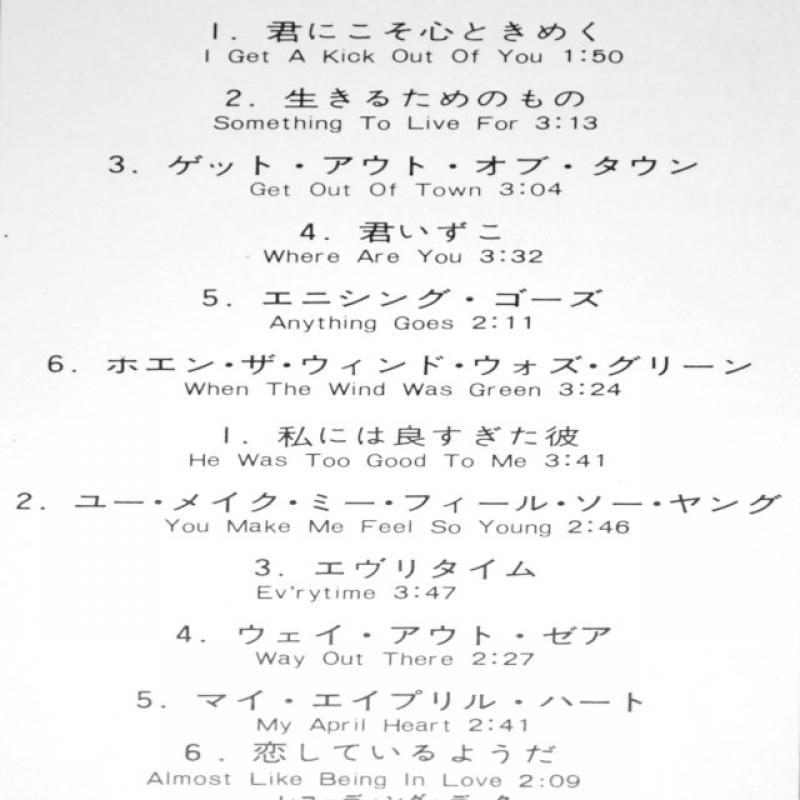 1. 君にこそ心ときめく
I Get A Kick Out Of You 1:50
2. 生きるためのもの
Something To Live For 3:13
3. ゲット・アウト・オブ・タウン
Get Out Of Town 3:04
4. 君いずこ
Where Are You 3:32
5. エニシング・ゴーズ
Anything Goes 2:11
6. ホエン・ザ・ウィンド・ウォズ・グリーン
When The Wind Was Green 3:24
1. 私には良すぎた彼
He Was Too Good To Me 3:41
2. ユー・メイク・ミー・フィール・ソー・ヤング
You Make Me Feel So Young 2:46
3. エヴリタイム
Ev'rytime 3:47
4. ウェイ・アウト・ゼア
Way Out There 2:27
5. マイ・エイプリル・ハート
My April Heart 2:41
6. 恋しているようだ
Almost Like Being In Love 2:09